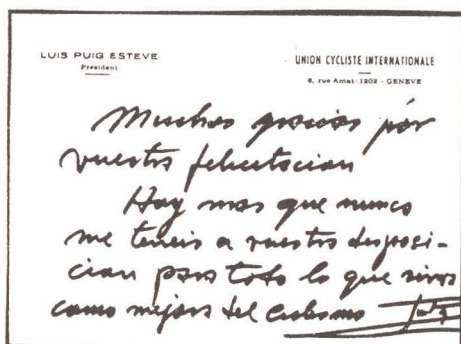 LUIS PUIG ESTEVE
Président
UNION CYCLISTE INTERNATIONALE
6, rue Amat-1202 - GENEVE
Muchas gracias por
vuestra felicitacion
Hoy mas que nunca
me teneis a vuestra disposi-
cion para todo lo que sirva
como mejora del ciclismo